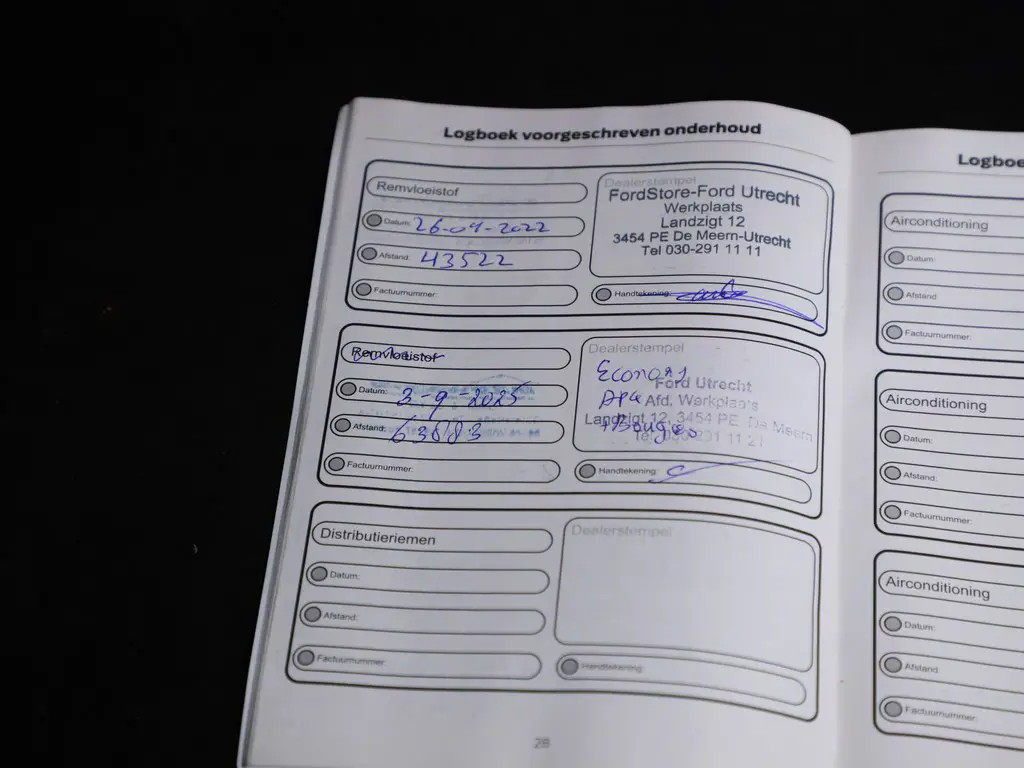 Logboek voorgeschreven onderhoud
Remvloeistof
Datum: 26-09-2022
Afstand: 43522
Factuurnummer:
Dealerstempel
FordStore-Ford Utrecht
Werkplaats
Landzigt 12
3454 PE De Meern-Utrecht
Tel 030-291 11 11
Handtekening:
Remvloeistof
Datum: 3-9-2025
Afstand:
Factuurnummer:
Dealerstempel
Ford Utrecht
Afd. Werkplaats
Landzigt 12, 3454 PE De Meern
Tel. 030-291 11 21
Economy
APK
+Bougies
Handtekening:
Distributieriemen
Datum:
Afstand:
Factuurnummer:
Dealerstempel
Handtekening:
28
Logboe
Airconditioning
Datum:
Afstand:
Factuurnummer:
Airconditioning
Datum:
Afstand:
Factuurnummer:
Airconditioning
Datum:
Afstand:
Factuurnummer: